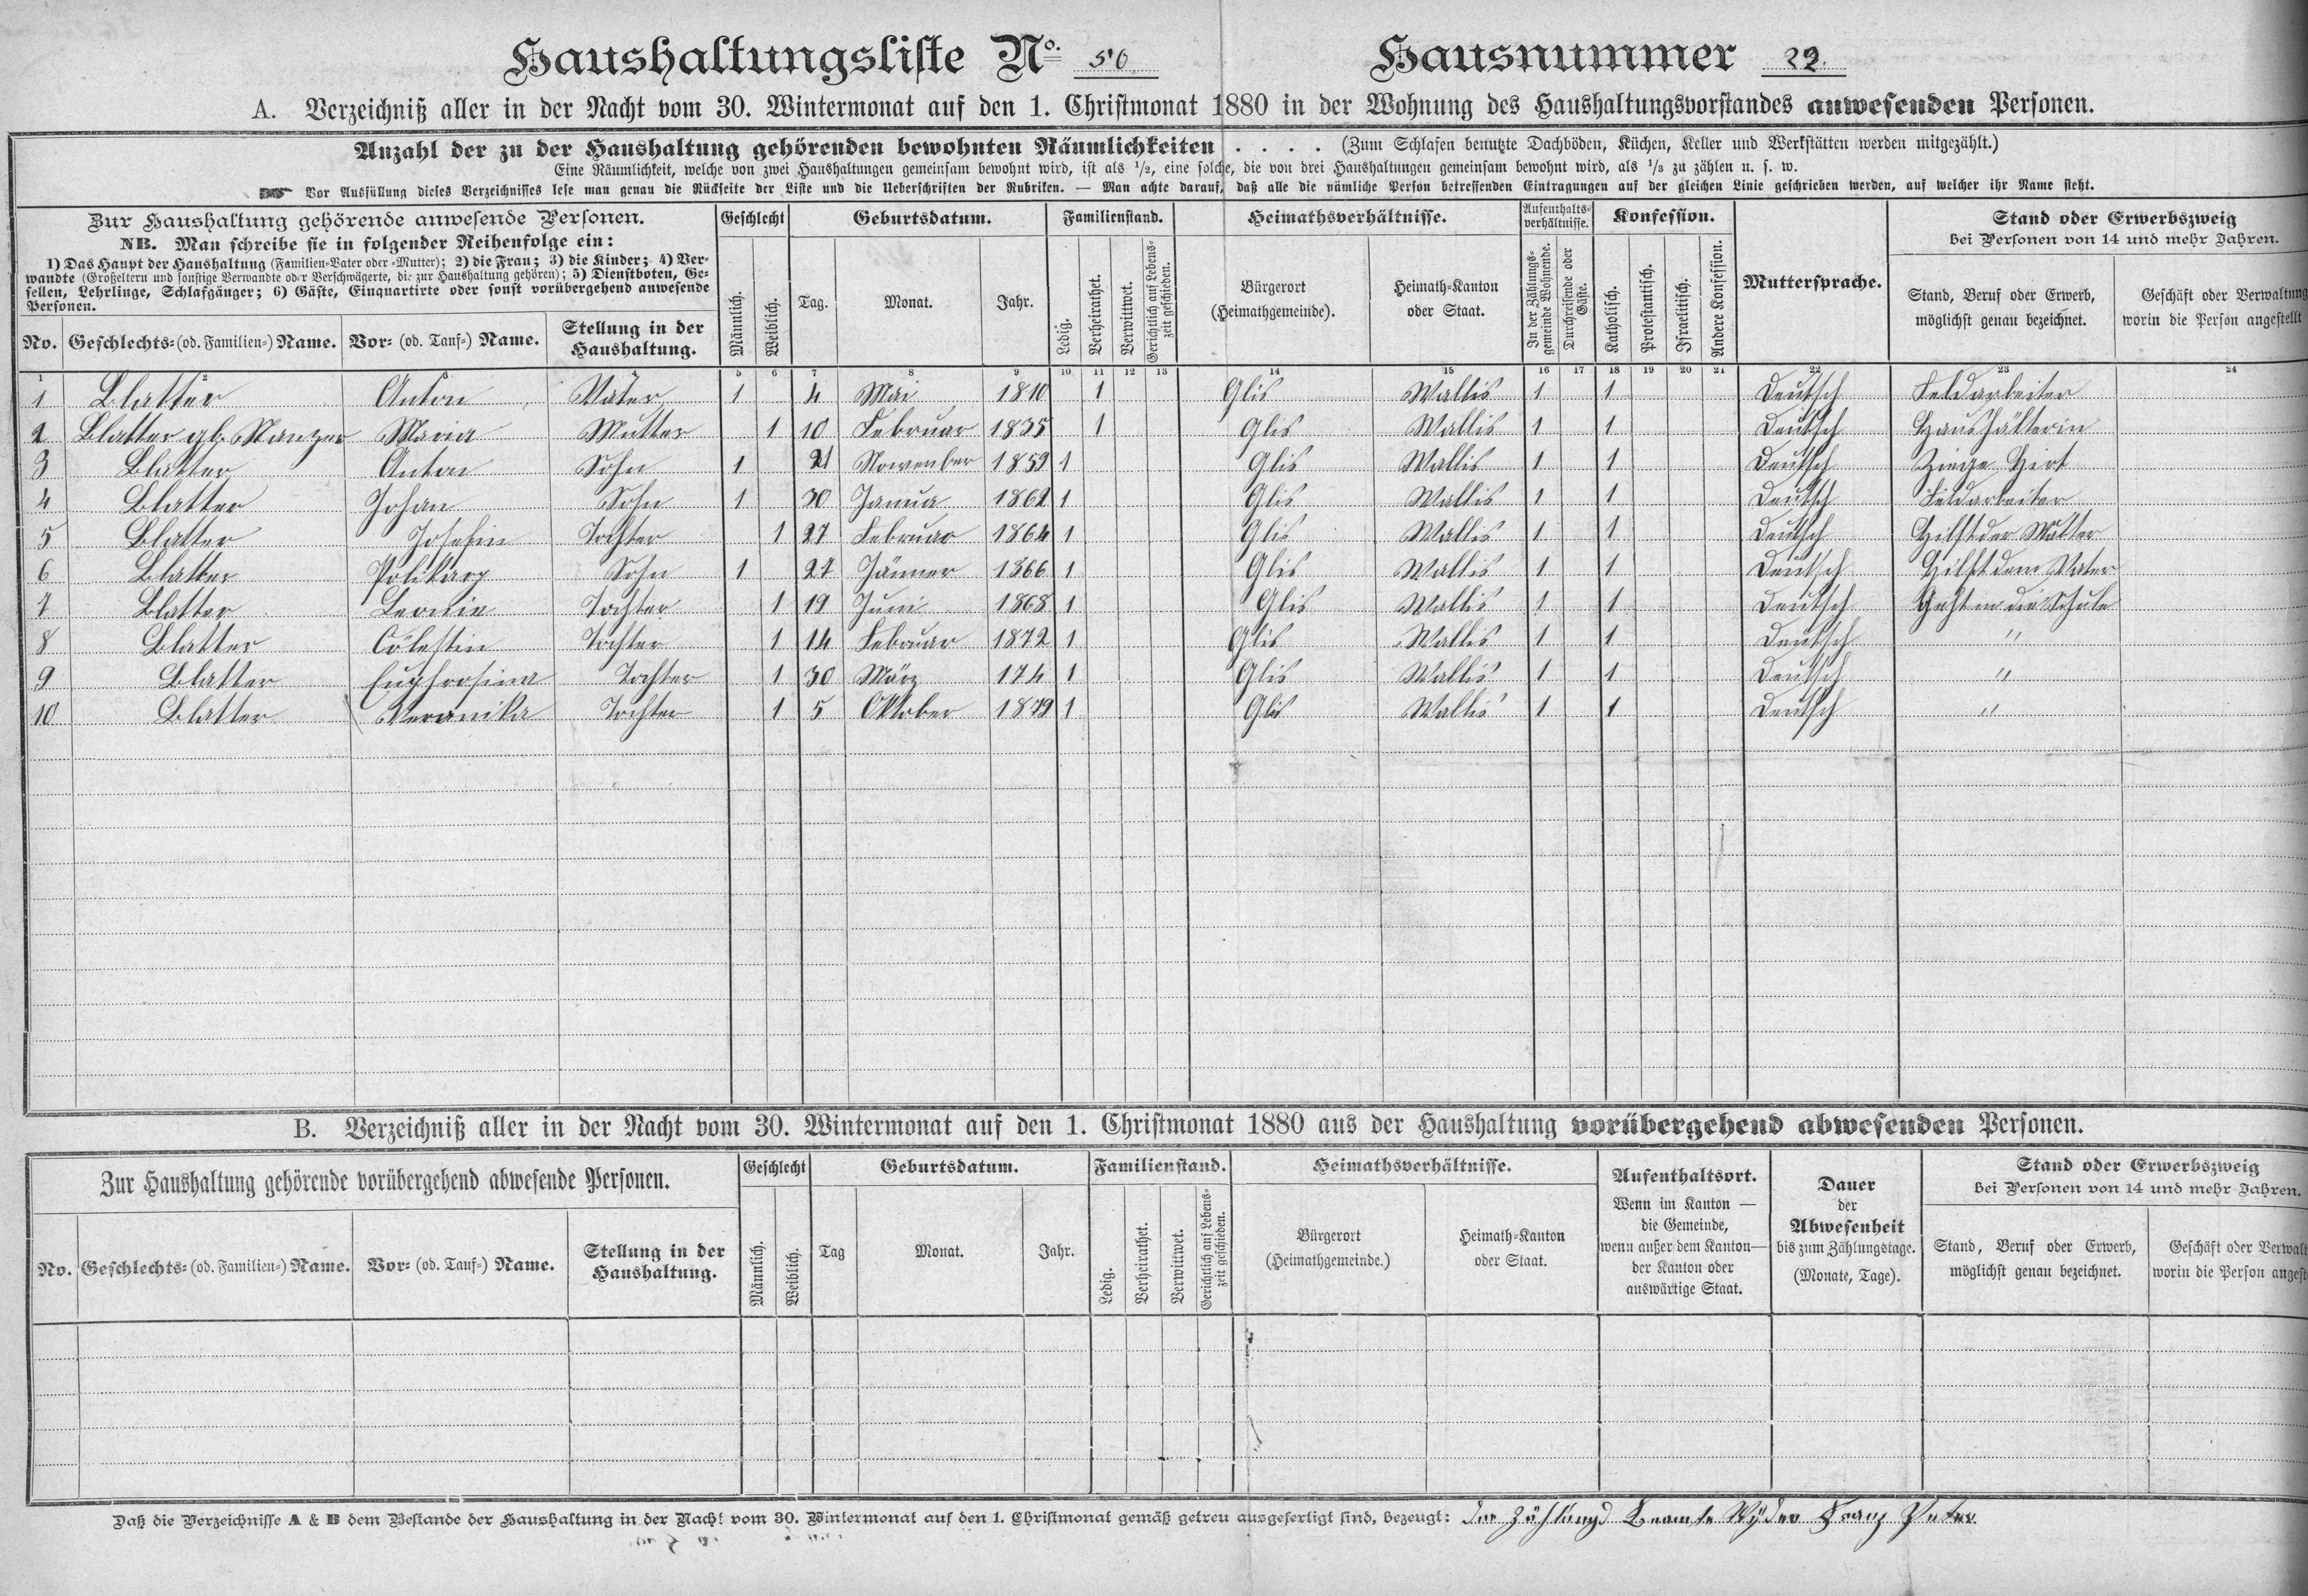 Haushaltungsliste No. 50
Hausnummer 29.
A. Verzeichniß aller in der Nacht vom 30. Wintermonat auf den 1. Christmonat 1880 in der Wohnung des Haushaltungsvorstandes anwesenden Personen.
Anzahl der zu der Haushaltung gehörenden bewohnten Räumlichkeiten . . . . (Zum Schlafen benutzte Dachböden, Küchen, Keller und Werkstätten werden mitgezählt.)
Eine Räumlichkeit, welche von zwei Haushaltungen gemeinsam bewohnt wird, ist als 1/2, eine solche, die von drei Haushaltungen gemeinsam bewohnt wird, als 1/3 zu zählen u. s. w.
Vor Ausfüllung dieses Verzeichnisses lese man genau die Rückseite der Liste und die Ueberschriften der Rubriken. — Man achte darauf, daß alle die nämliche Person betreffenden Eintragungen auf der gleichen Linie geschrieben werden, auf welcher ihr Name steht.
Zur Haushaltung gehörende anwesende Personen.
NB. Man schreibe sie in folgender Reihenfolge ein:
1) Das Haupt der Haushaltung (Familien-Vater oder -Mutter); 2) die Frau; 3) die Kinder; 4) Ver-
wandte (Großeltern und sonstige Verwandte oder Verschwägerte, die zur Haushaltung gehören); 5) Dienstboten, Ge-
sellen, Lehrlinge, Schlafgänger; 6) Gäste, Einquartirte oder sonst vorübergehend anwesende
Personen.
No. Geschlechts- (od. Familien-) Name. Vor- (od. Tauf-) Name. Stellung in der
Haushaltung.
Geschlecht
Männlich. Weiblich.
Geburtsdatum.
Tag. Monat. Jahr.
Familienstand.
Ledig. Verheirathet. Verwittwet. Gerichtlich auf Lebens-
zeit geschieden.
Heimathsverhältnisse.
Bürgerort
(Heimathgemeinde).
Heimath-Kanton
oder Staat.
Aufenthalts-
verhältnisse.
In der Zählungs-
gemeinde Wohnende.
Durchreisende oder
Gäste.
Konfession.
Katholisch. Protestantisch. Israelitisch. Andere Konfession.
Muttersprache.
Stand oder Erwerbszweig
bei Personen von 14 und mehr Jahren.
Stand, Beruf oder Erwerb,
möglichst genau bezeichnet.
Geschäft oder Verwaltung
worin die Person angestellt
1 2 3 4 5 6 7 8 9 10 11 12 13 14 15 16 17 18 19 20 21 22 23 24
1 Blatter Anton Vater 1 4 Mai 1810 1 Glis Wallis 1 1 Deutsch Feldarbeiter
2 Blatter gb. Manzer Maria Mutter 1 10 Februar 1835 1 Glis Wallis 1 1 Deutsch Haushälterin
3 Blatter Anton Sohn 1 21 Nowenber 1859 1 Glis Wallis 1 1 Deutsch Ziege Hirt
4 Blatter Johan Sohn 1 30 Janua 1862 1 Glis Wallis 1 1 Deutsch Feldarbeiter
5 Blatter Josefin Tochter 1 27 Februar 1864 1 Glis Wallis 1 1 Deutsch Hilft der Mutter
6 Blatter Polikarp Sohn 1 27 Jänner 1866 1 Glis Wallis 1 1 Deutsch Hilft dem Vater
7 Blatter Leonie Tochter 1 19 Juni 1868 1 Glis Wallis 1 1 Deutsch Geht in die Schule
8 Blatter Cölestin Tochter 1 14 Februar 1872 1 Glis Wallis 1 1 Deutsch "
9 Blatter Euphrosina Tochter 1 30 März 174 1 Glis Wallis 1 1 Deutsch "
10 Blatter Veranika Tochter 1 5 Oktober 1879 1 Glis Wallis 1 1 Deutsch "
B. Verzeichniß aller in der Nacht vom 30. Wintermonat auf den 1. Christmonat 1880 aus der Haushaltung vorübergehend abwesenden Personen.
Zur Haushaltung gehörende vorübergehend abwesende Personen.
No. Geschlechts- (od. Familien-) Name. Vor- (od. Tauf-) Name. Stellung in der
Haushaltung.
Geschlecht
Männlich. Weiblich.
Geburtsdatum.
Tag Monat. Jahr.
Familienstand.
Ledig. Verheirathet. Verwittwet. Gerichtlich auf Lebens-
zeit geschieden.
Heimathsverhältnisse.
Bürgerort
(Heimathgemeinde.)
Heimath-Kanton
oder Staat.
Aufenthaltsort.
Wenn im Kanton —
die Gemeinde,
wenn außer dem Kanton—
der Kanton oder
auswärtige Staat.
Dauer
der
Abwesenheit
bis zum Zählungstage.
(Monate, Tage).
Stand oder Erwerbszweig
bei Personen von 14 und mehr Jahren.
Stand, Beruf oder Erwerb,
möglichst genau bezeichnet.
Geschäft oder Verwalt
worin die Person angest
Daß die Verzeichnisse A & B dem Bestande der Haushaltung in der Nacht vom 30. Wintermonat auf den 1. Christmonat gemäß getreu ausgefertigt sind, bezeugt: der Zählungs Beamte Wyder Franz Peter